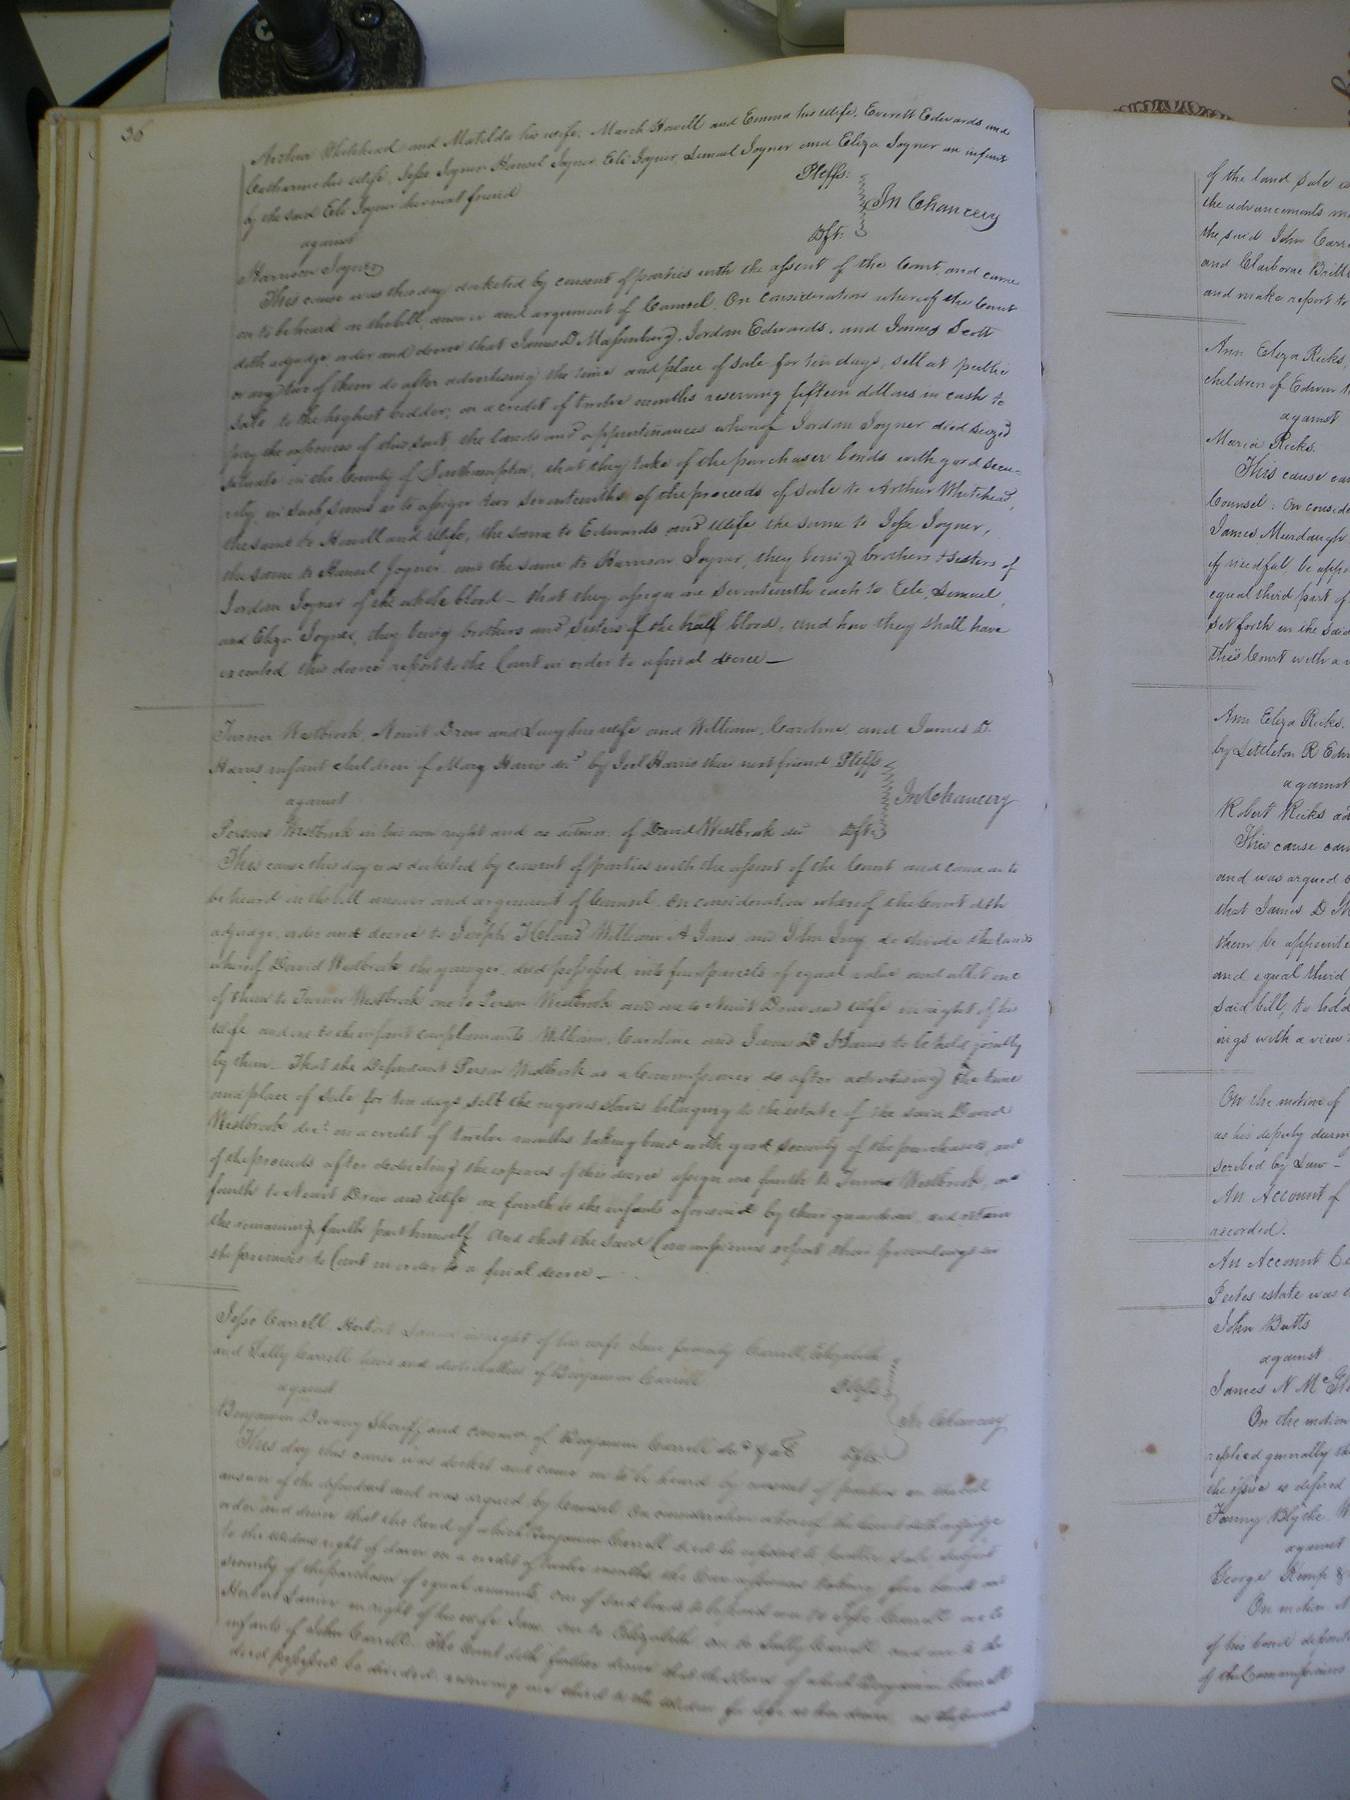 36
Arthur Whitehead and Matilda his wife, March Howell and Emma his wife, Everett Edwards and
Catharine his wife, Jesse Joyner, Hansel Joyner, Eli Joyner, Lemuel Joyner and Eliza Joyner an infant
by the said Eli Joyner her next friend
Pltffs.
against
In Chancery
Dft.
Harrison Joyner
This cause was this day docketed by consent of parties with the assent of the Court and came
on to be heard on the bill, answer and argument of Counsel. On consideration whereof the Court
doth adjudge order and decree that James D Massenburg, Jordan Edwards, and James Scott
or any two of them do after advertising the time and place of sale for ten days, sell at public
sale to the highest bidder, on a credit of twelve months reserving fifteen dollars in cash to
pay the expenses of this suit the lands and appurtenances whereof Jordan Joyner died seized
situate in the County of Southampton, that they take of the purchaser bonds with good secu-
rity, in such sums as to assign two seventeenths of the proceeds of sale to Arthur Whitehead,
the same to Howell and wife, the same to Edwards and wife the same to Jesse Joyner,
the same to Hansel Joyner and the same to Harrison Joyner, they being brothers & sisters of
Jordan Joyner of the whole blood - that they assign one seventeenth each to Eli, Lemuel,
and Eliza Joyner, they being brothers and sisters of the half blood, and how they shall have
executed this decree report to the Court in order to a final decree -
Turner Westbrook, Newit Drew and Lucy his wife and William, Caroline, and James D.
Harris infant children of Mary Harris decd by Joel Harris their next friend Pltffs
against
In Chancery
Persons Westbrook in his own right and as admor. of David Westbrook decd Dft.
This cause this day was docketed by consent of parties with the assent of the Court and came on to
be heard on the bill answer and argument of Counsel. On consideration whereof the Court doth
adjudge, order and decree to Joseph William A Jones and John to divide the land
whereof David Westbrook the younger, died possessed into four parcels of equal value and allot one
of them to Turner Westbrook one to Person Westbrook and one to Newit Drew and wife in right of his
wife and one to the infant complainants William, Caroline and James D Harris to be held jointly
by them - That the Defendant Person Westbrook as a Commissioner do after advertising the time
and place of sale for ten days sell the negroes slaves belonging to the estate of the said David
Westbrook decd on a credit of twelve months taking bond with good security of the purchasers, and
of the proceeds after deducting the expenses of this decree assign one fourth to Turner Westbrook, one
fourth to Newit Drew and wife one fourth to the infants aforesaid by their guardian and retain
the remaining fourth part himself. And that the said Commissioners report their proceedings in
the premises to Court in order to a final decree -
Jesse Carrell, Herbert Lanier in right of his wife Jane formerly Carrell, Elizabeth
and Sally Carrell heirs and distributees of Benjamin Carrell
Pltffs
against
In Chancery
Benjamin Devany Sheriff and commr of Benjamin Carrell decd Dfts
This day this cause was docket and came on to be heard by consent of parties on the bill
answer of the defendant and was argued by Counsel. On consideration whereof the Court doth adjudge
order and decree that the land of which Benjamin Carrell died be exposed to public sale, subject
to the widows right of dower on a credit of twelve months, the Commissioner taking five bonds and
security of the purchaser of equal amounts, one of said bonds to be paid over to Jesse Carrell one to
Herbert Lanier in right of his wife Jane one to Elizabeth one to Sally Carrell and one to the
infants of John Carrell. The Court doth further decree that the slaves of which Benjamin Carrell
died possessed be divided, reserving one third to the widow for life as her dower
of the land sale
the advancements
the said John
and Claiborne
and make report to
Ann Eliza Ricks,
children of Edwin
against
Maria Ricks.
This cause
Counsel. On
James Murdaugh
if needful be
equal third part of
set forth in the said
this Court with a
Ann Eliza Ricks,
by Littleton R
against
Robert Ricks
This cause
and was argued
that James D
them be
and equal third
said bill, to hold
ings with a view
On the motion of
as his deputy
scribed by Law -
An Account of
recorded.
An Account
estate was
John Butts
against
James N
On the motion
replied generally
the issue is
Fanny Blythe
against
George Kemp
On motion
of his bond
of the Commissioners